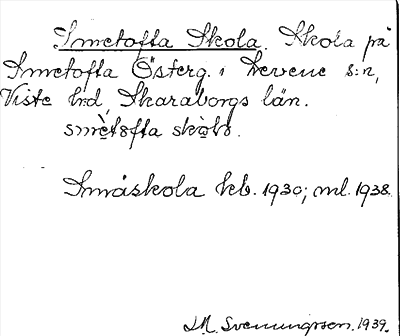 Smetofta Skola. Skola på
Smetofta Österg. i Levene s:n,
Viste hrd, Skaraborgs län.
smètofta skòla.
Småskola kb. 1930; ml. 1938.
Svenungsson. 1939.